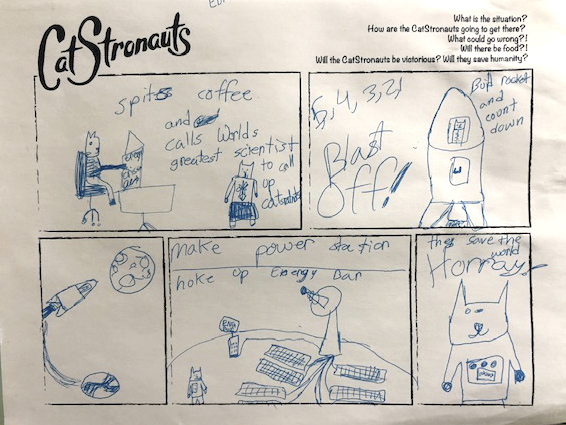 CatStronauts
What is the situation?
How are the CatStronauts going to get there?
What could go wrong?!
Will there be food?!
Will the CatStronauts be victorious? Will they save humanity?
spits coffee
and
calls Worlds
greatest scientist
to call
up
catstronauts
5, 4, 3, 2, 1
Blast
Off!
Built rocket
and
count
down
make power station
hoke up Energy Bar
ENG
they save the
world
Horray!